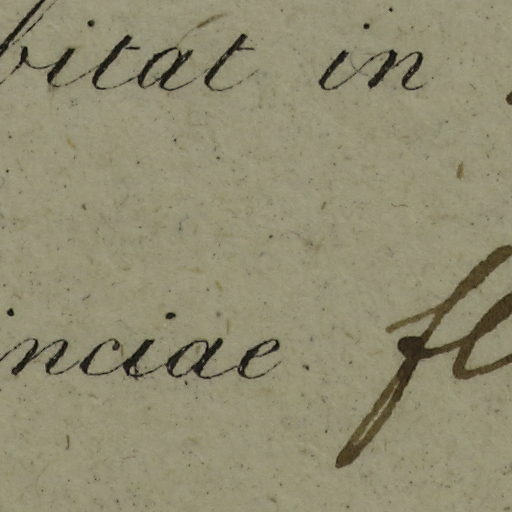 bitat in
inciae fl